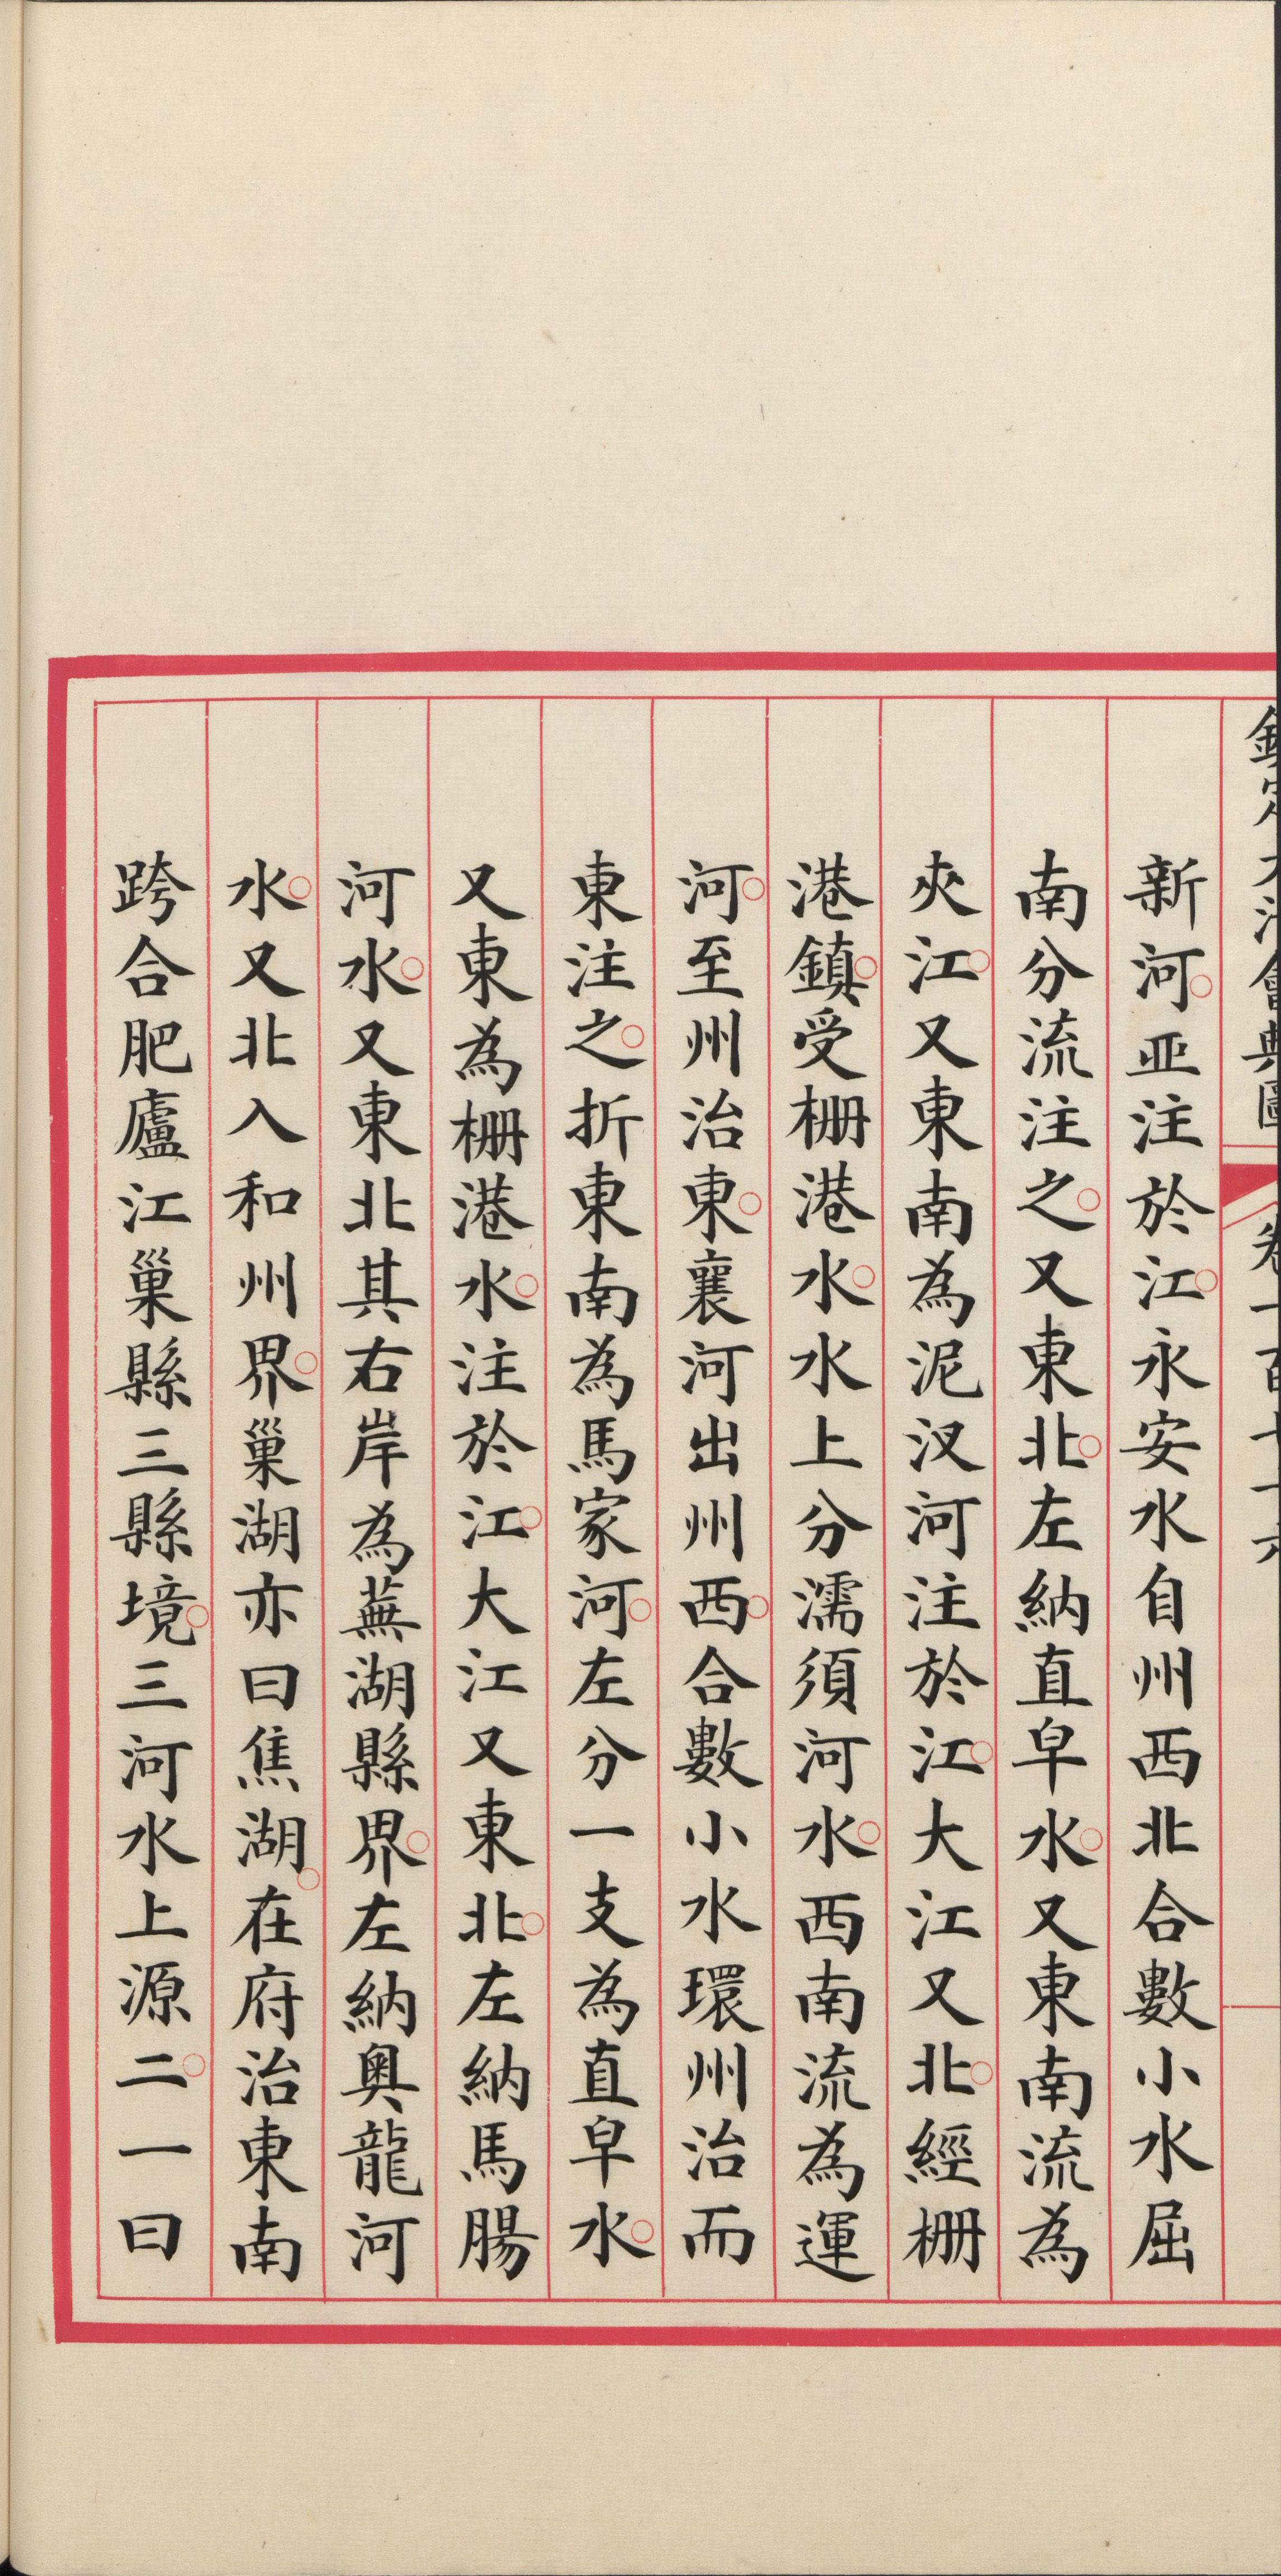 欽定大清會典圖 卷一百七十六
新河。亚注於江。永安水自州西北合數小水屈
南分流注之。又東北。左納直皁水。又東南流為
夾江。又東南為泥汊河注於江。大江又北。經柵
港鎮。受柵港水。水上分濡須河水。西南流為運
河。至州治東。襄河出州西。合數小水環州治而
東注之。折東南為馬家河。左分一支為直皁水。
又東為柵港水。注於江。大江又東北。左納馬腸
河水。又東北其右岸為蕪湖縣界。左納奧龍河
水。又北入和州界。巢湖亦曰焦湖。在府治東南
跨合肥廬江巢縣三縣境。三河水上源二。一曰